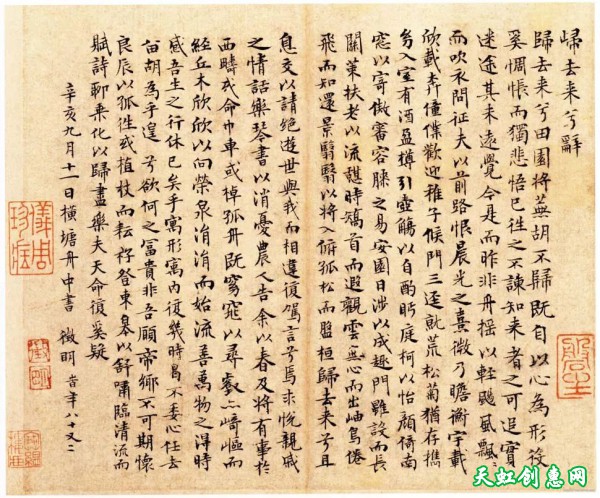 歸去来兮辭
歸去来兮田園將蕪胡不歸既自以心為形役
奚惆悵而獨悲悟已往之不諫知来者之可追實
迷途其未遠覺今是而昨非舟摇以輕颺風飄〻
而吹衣問征夫以前路恨晨光之熹微乃瞻衡宇載
欣載奔僮僕歡迎稚子候門三逕就荒松菊猶存攜
幼入室有酒盈樽引壺觴以自酌眄庭柯以怡顔倚南
窓以寄傲審容膝之易安園日涉以成趣門雖設而長
關策扶老以流憩時矯首而遐觀雲無心而出岫鳥倦
飛而知還景翳翳以將入撫孤松而盤桓歸去来兮且
息交以請絶遊世與我而相違復駕言兮焉求悦親戚
之情話樂琴書以消憂農人告余以春及將有事於
西疇或命巾車或棹孤舟既窈窕以尋壑亦崎嶇而
經丘木欣欣以向榮泉涓涓而始流善萬物之得時
感吾生之行休已矣乎寓形寓内復幾時曷不委心任去
留胡為乎遑兮欲何之富貴非吾願帝鄉不可期懷
良辰以孤往或植杖而耘耔登東皋以舒嘯臨清流而
賦詩聊乘化以歸盡樂夫天命復奚疑
辛亥九月十一日横塘舟中書 徵明 時年八十又二
儀周珍藏
徵明
天虹创惠网